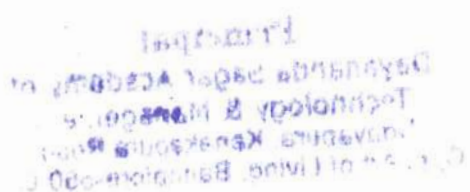 Principal
Dayananda Sagar Academy of
Technology & Manageme
Udayapura, Kanakapura Road
Opp. Art of Living, Bangalore-560